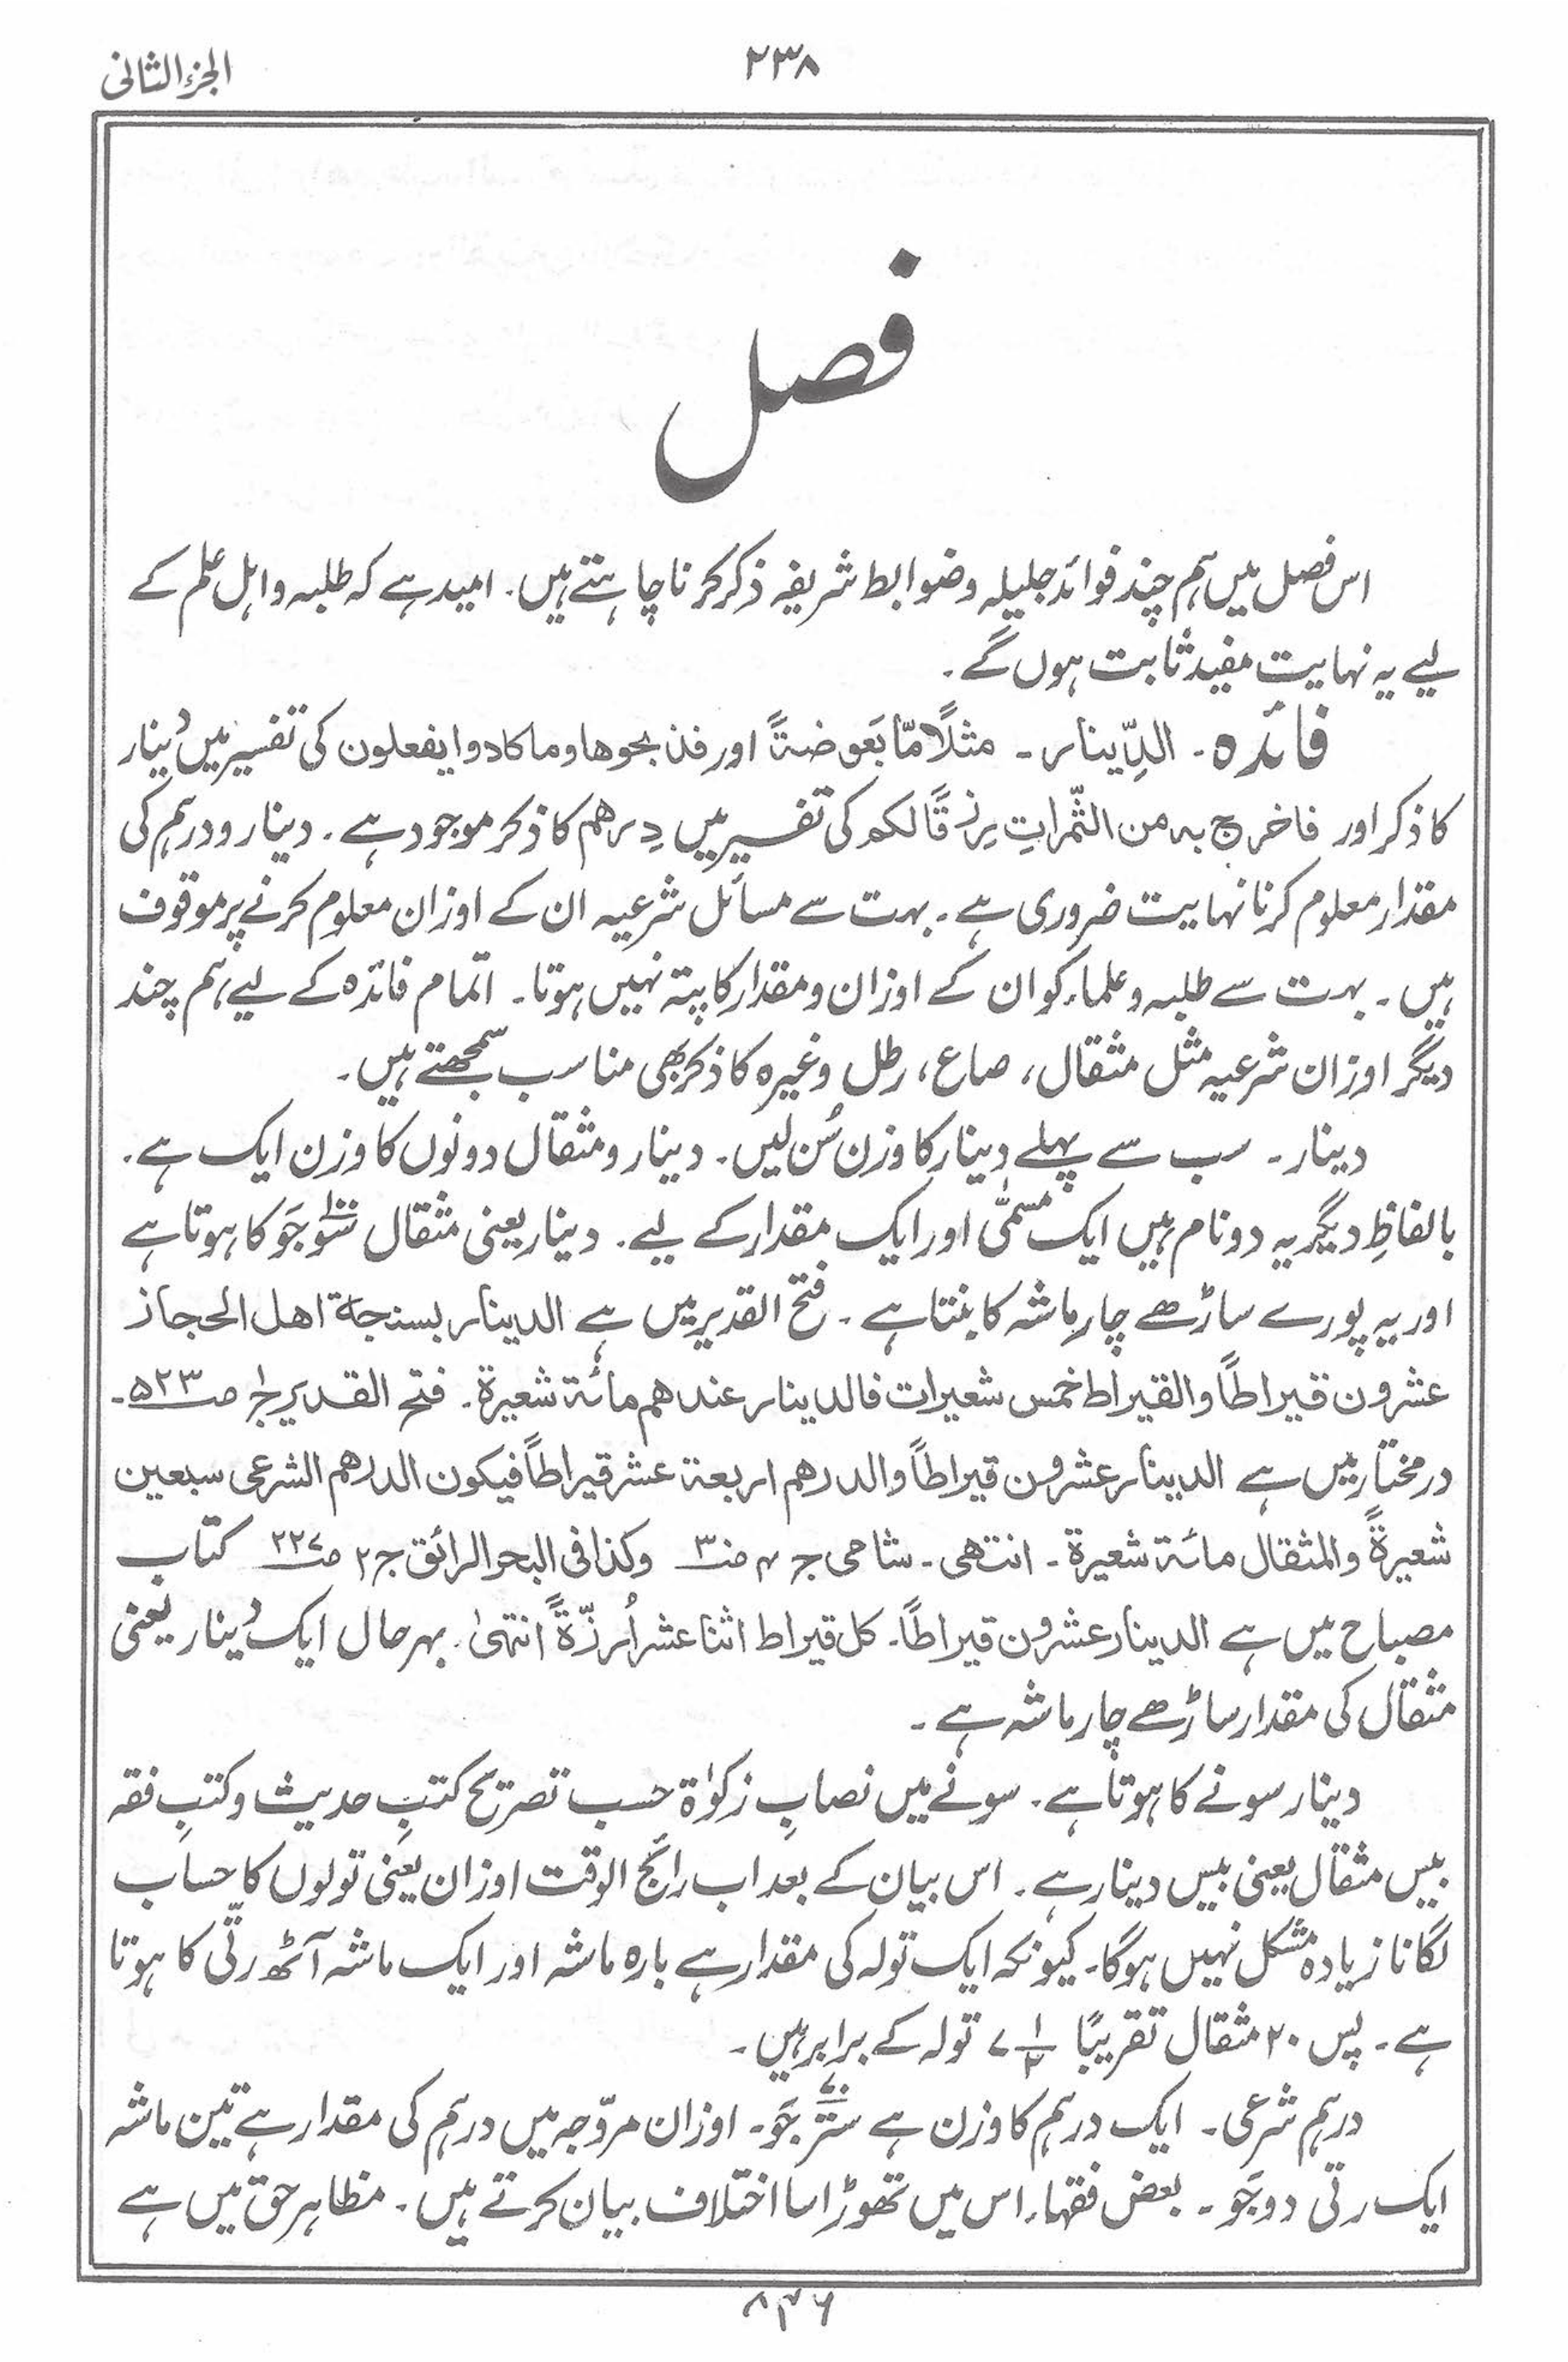 الجزء الثانی
۲۳۸
فصل
اس فصل میں ہم چند فوائد جلیلہ وضوابط شریفہ ذکر کرنا چاہتے ہیں۔ امید ہے کہ طلبہ و اہل علم کے
لیے یہ نہایت مفید ثابت ہوں گے۔
فائدہ۔ الدِّینار۔ مثلًا مّا بَعوضۃً اور فذبحوھا وما کادوا یفعلون کی تفسیر میں دُینار
کا ذکر اور فاخرج بہ من الثّمراتِ رِزقًا لکم کی تفسیر میں دِرھم کا ذکر موجود ہے۔ دینار و درہم کی
مقدار معلوم کرنا نہایت ضروری ہے۔ بہت سے مسائل شرعیہ ان کے اوزان معلوم کرنے پر موقوف
ہیں۔ بہت سے طلبہ و علماء کو ان کے اوزان و مقدار کا پتہ نہیں ہوتا۔ اتمام فائدہ کے لیے ہم چند
دیگر اوزان شرعیہ مثل مثقال، صاع، رطل وغیرہ کا ذکر بھی مناسب سمجھتے ہیں۔
دینار۔ سب سے پہلے دینار کا وزن سُن لیں۔ دینار و مثقال دونوں کا وزن ایک ہے۔
بالفاظِ دیگر یہ دو نام ہیں ایک مسمّٰی اور ایک مقدار کے لیے۔ دینار یعنی مثقال سَو ۱۰۰ جَو کا ہوتا ہے
اور یہ پورے ساڑھے چار ماشہ کا بنتا ہے۔ فتح القدیر میں ہے الدینار بسنجۃ اھل الحجاز
عشرون قیراطًا والقیراط خمس شعیرات فالدینار عندھم مائۃ شعیرۃ۔ فتح القدیر ج۱ ص۵۲۳۔
درمختار میں ہے الدینار عشرون قیراطًا والدرھم اربعۃ عشر قیراطًا فیکون الدرھم الشرعی سبعین
شعیرۃً والمثقال مائۃ شعیرۃ۔ انتھی۔ شامی ج۲ ص۳۰ وکذا فی البحر الرائق ج۲ ص۲۲۷ کتاب
مصباح میں ہے الدینار عشرون قیراطًا۔ کل قیراط اثنا عشر اُرزّۃً انتہیٰ۔ بہر حال ایک دُینار یعنی
مثقال کی مقدار ساڑھے چار ماشہ ہے۔
دینار سونے کا ہوتا ہے۔ سونے میں نصابِ زکوٰۃ حسب تصریح کتبِ حدیث و کتبِ فقہ
بیس مثقال یعنی بیس دینار ہے۔ اس بیان کے بعد اب رائج الوقت اوزان یعنی تولوں کا حساب
لگانا زیادہ مشکل نہیں ہوگا۔ کیونکہ ایک تولہ کی مقدار ہے بارہ ماشہ اور ایک ماشہ آٹھ رتّی کا ہوتا
ہے۔ پس ۲۰ مثقال تقریبًا ۷ ۱/۲ تولہ کے برابر ہیں۔
درہم شرعی۔ ایک درہم کا وزن ہے ستّر ۷۰ جَو۔ اوزان مروّجہ میں درہم کی مقدار ہے تین ماشہ
ایک رتی دو جَو۔ بعض فقہاء اس میں تھوڑا سا اختلاف بیان کرتے ہیں۔ مظاہر حق میں ہے
۸۳۶